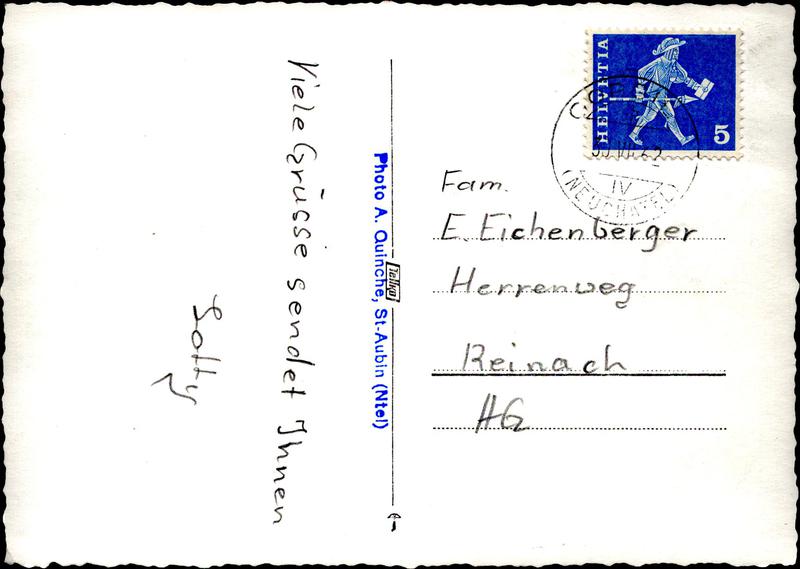 Viele Grüsse sendet Ihnen
Lotty
Photo A. Quinche, St-Aubin (Ntel)
HELVETIA
5
VII 62
IV
(NEUCHATEL)
Fam.
E. Eichenberger
Herrenweg
Reinach
AG